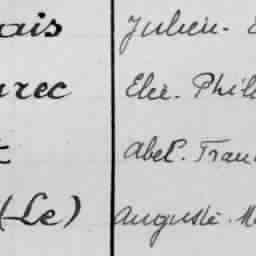 ais Julien.
rec Elie. Phil
Abel. Fran
(Le) Auguste. M